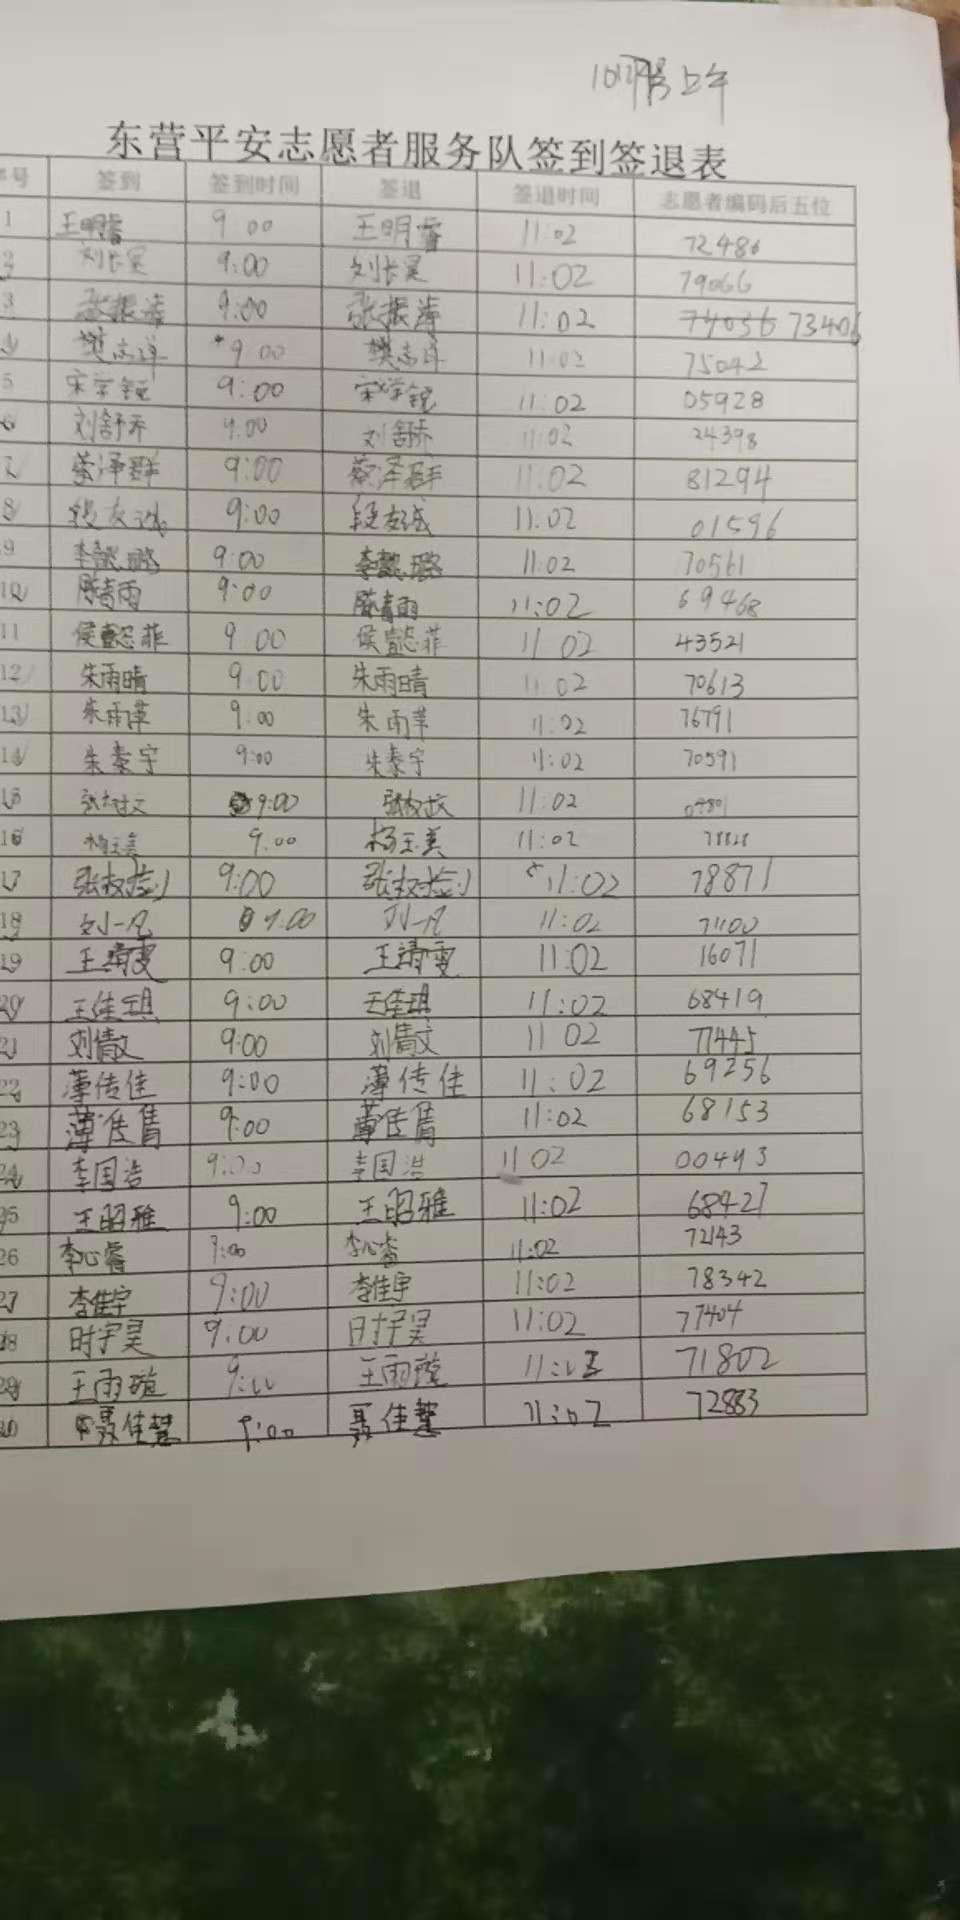 上午
东营平安志愿者服务队签到签退表
号 签到 签到时间 签退 签退时间 志愿者编码后五位
1 王明睿 9 00 王明睿 11:02 72486
2 刘长昊 9:00 刘长昊 11:02 79066
3 张振涛 9:00 张振涛 11:02 74056 73406
樊志 9 00 樊志 11:02 75042
5 宋学锐 9:00 宋学锐 11:02 05928
6 刘舒乔 9:00 刘舒乔 11:02 24398
7 蔡泽群 9:00 蔡泽群 11:02 81294
8 段友诚 9:00 段友诚 11:02 01596
9 李懿璐 9:00 李懿璐 11:02 70561
10 青雨 9:00 青雨 11:02 69468
11 侯懿菲 9 00 侯懿菲 11 02 43521
12 朱雨晴 9:00 朱雨晴 11 02 70613
13 朱雨 9:00 朱雨 11:02 76791
14 朱泰宇 9:00 朱泰宇 11:02 70591
15 张 9:00 张 11:02
16 杨玉美 9:00 杨玉美 11:02
17 张 9:00 张 11:02 78871
18 刘一凡 9:00 刘一凡 11:02 71100
19 王靖雯 9:00 王靖雯 11:02 16071
20 王佳琪 9:00 王佳琪 11:02 68419
21 刘倩文 9:00 刘倩文 11 02 77445
22 薄传佳 9:00 薄传佳 11:02 69256
23 薄佳 9:00 薄佳 11:02 68153
24 李国浩 9:00 李国浩 11 02 00493
25 王昭雅 9:00 王昭雅 11:02 68427
26 李心睿 9:00 李心睿 11:02 72143
27 李佳宇 9:00 李佳宇 11:02 78342
28 时宇昊 9:00 时宇昊 11:02 77404
29 王雨璇 9:00 王雨璇 11:02 71802
30 聂佳慧 9:00 聂佳慧 11:02 72883